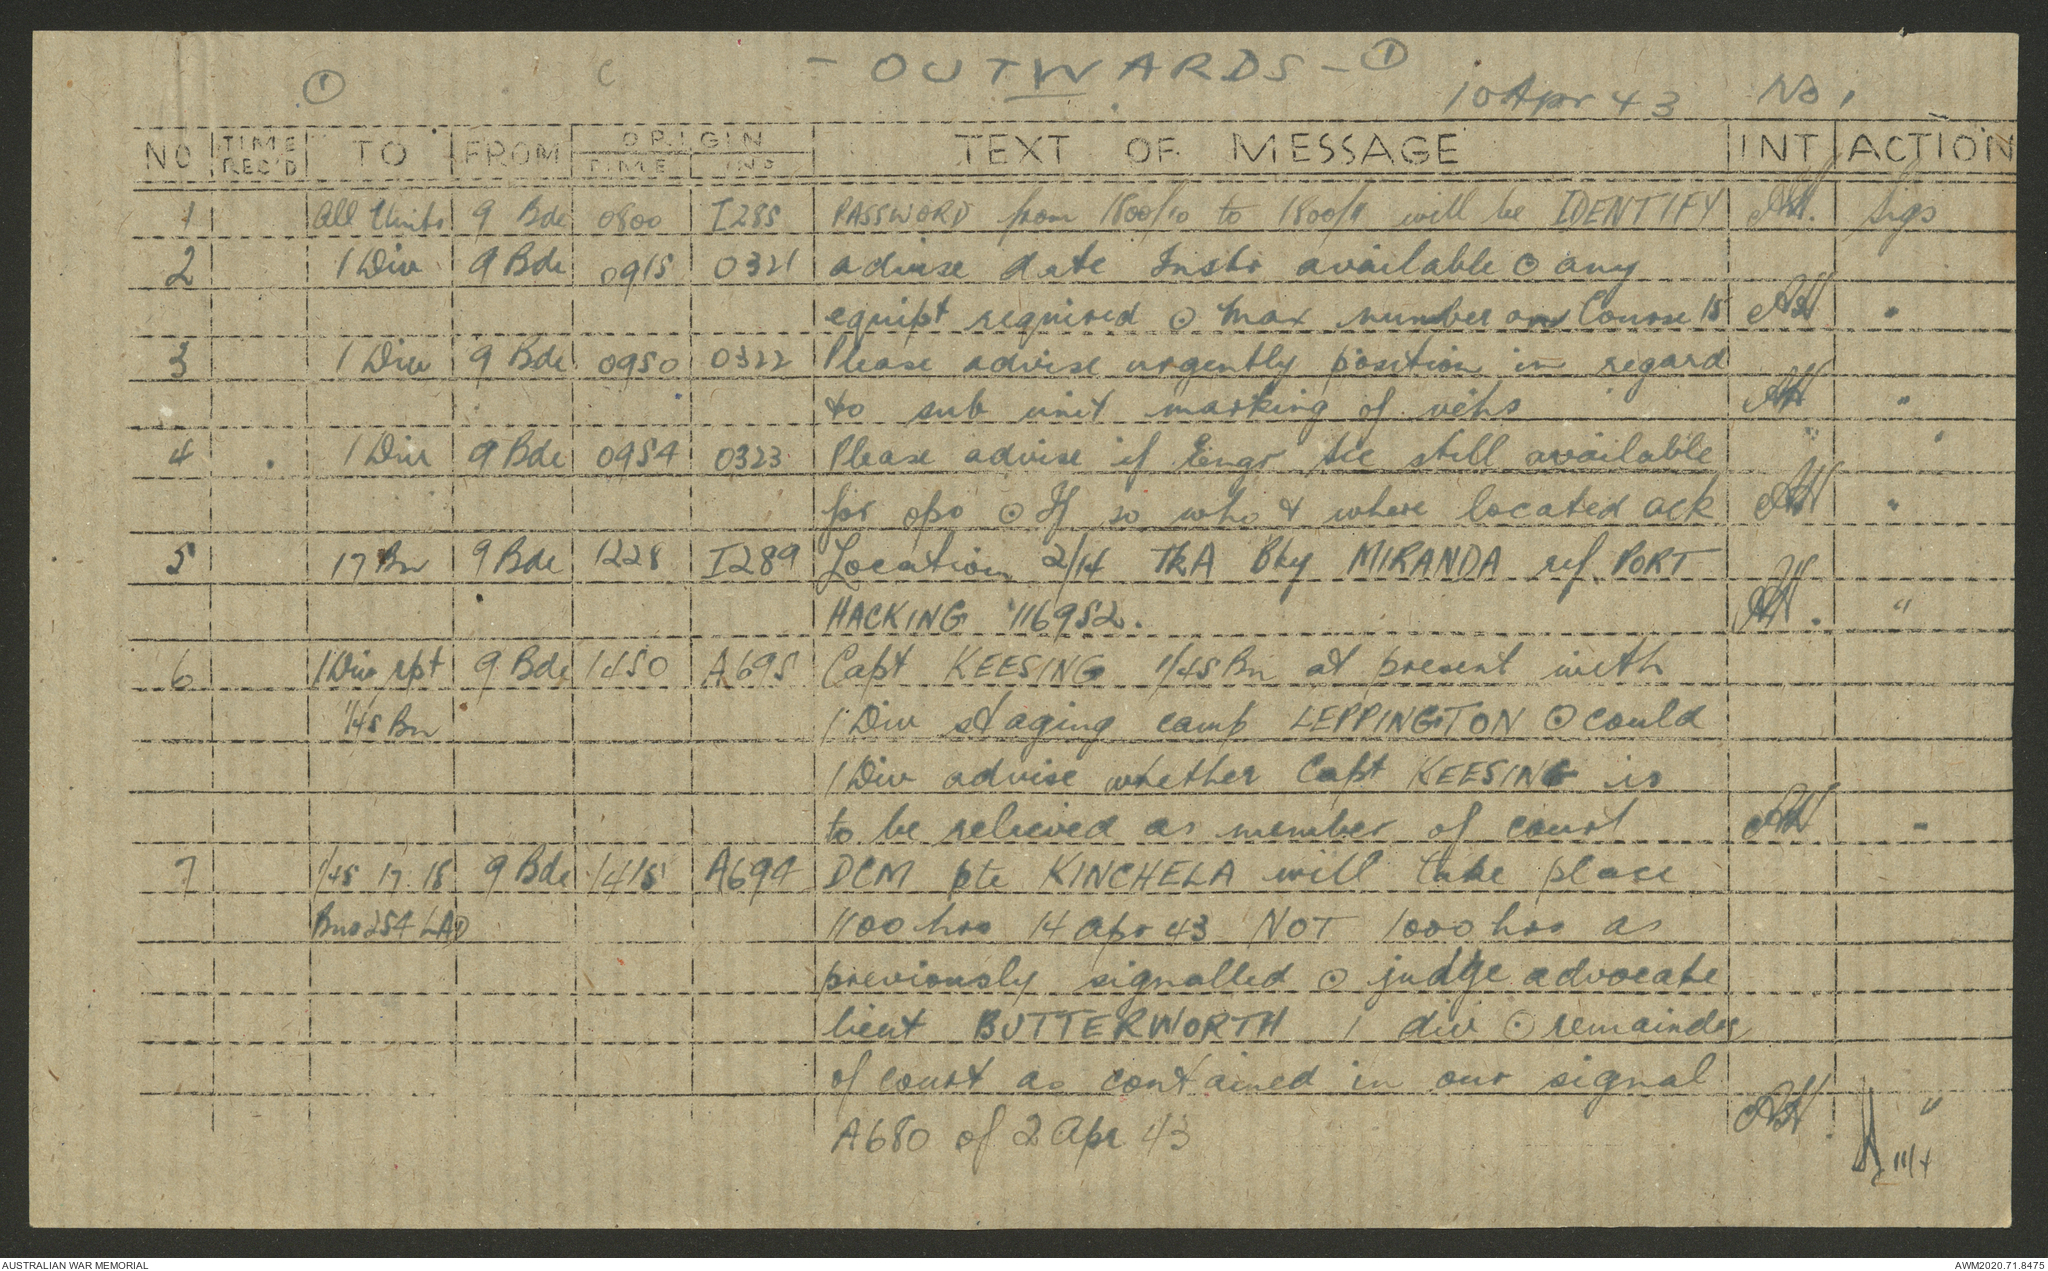 - OUTWARDS - ①
① C 10 Apr 43 No 1
NO TIME REC'D TO FROM ORIGIN TIME NO TEXT OF MESSAGE INT ACTION
1 All Units 9 Bde 0800 I285 PASSWORD from 1800/10 to 1800/11 will be IDENTIFY AH. Sigs
2 1 Div 9 Bde 0915 0321 advise date Instr available ⊙ any
equipt required ⊙ max number on Course 15 AH "
3 1 Div 9 Bde 0950 0322 Please advise urgently position in regard
to sub unit marking of vehs AH "
4 1 Div 9 Bde 0954 0323 Please advise if Engr sec still available "
for ops ⊙ If so who & where located ack AH "
5 17 Bn 9 Bde 1228 I289 Location 2/14 TkA Bty MIRANDA ref. PORT
HACKING 116952. AH. "
6 1 Div rpt 9 Bde 1450 A695 Capt KEESING 1/45 Bn at present with
1/45 Bn 1 Div staging camp LEPPINGTON ⊙ could
1 Div advise whether Capt KEESING is
to be relieved as member of court AH "
7 1/45 17 18 9 Bde 1415 A694 DCM pte KINCHELA will take place
Bns 254 LAD 1100 hrs 14 Apr 43 NOT 1000 hrs as
previously signalled ⊙ judge advocate
lieut BUTTERWORTH 1 div ⊙ remainder
of court as contained in our signal
A680 of 2 Apr 43 AH. "
11/4
AUSTRALIAN WAR MEMORIAL AWM2020.71.8475